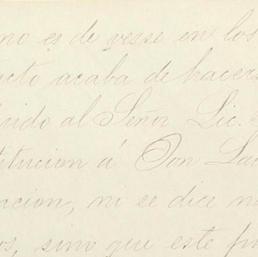 no es de verse en los
acto acaba de hacers
ido al Señor Lic.
titucion á Don La
acion, ni se dice n
os, sino que este